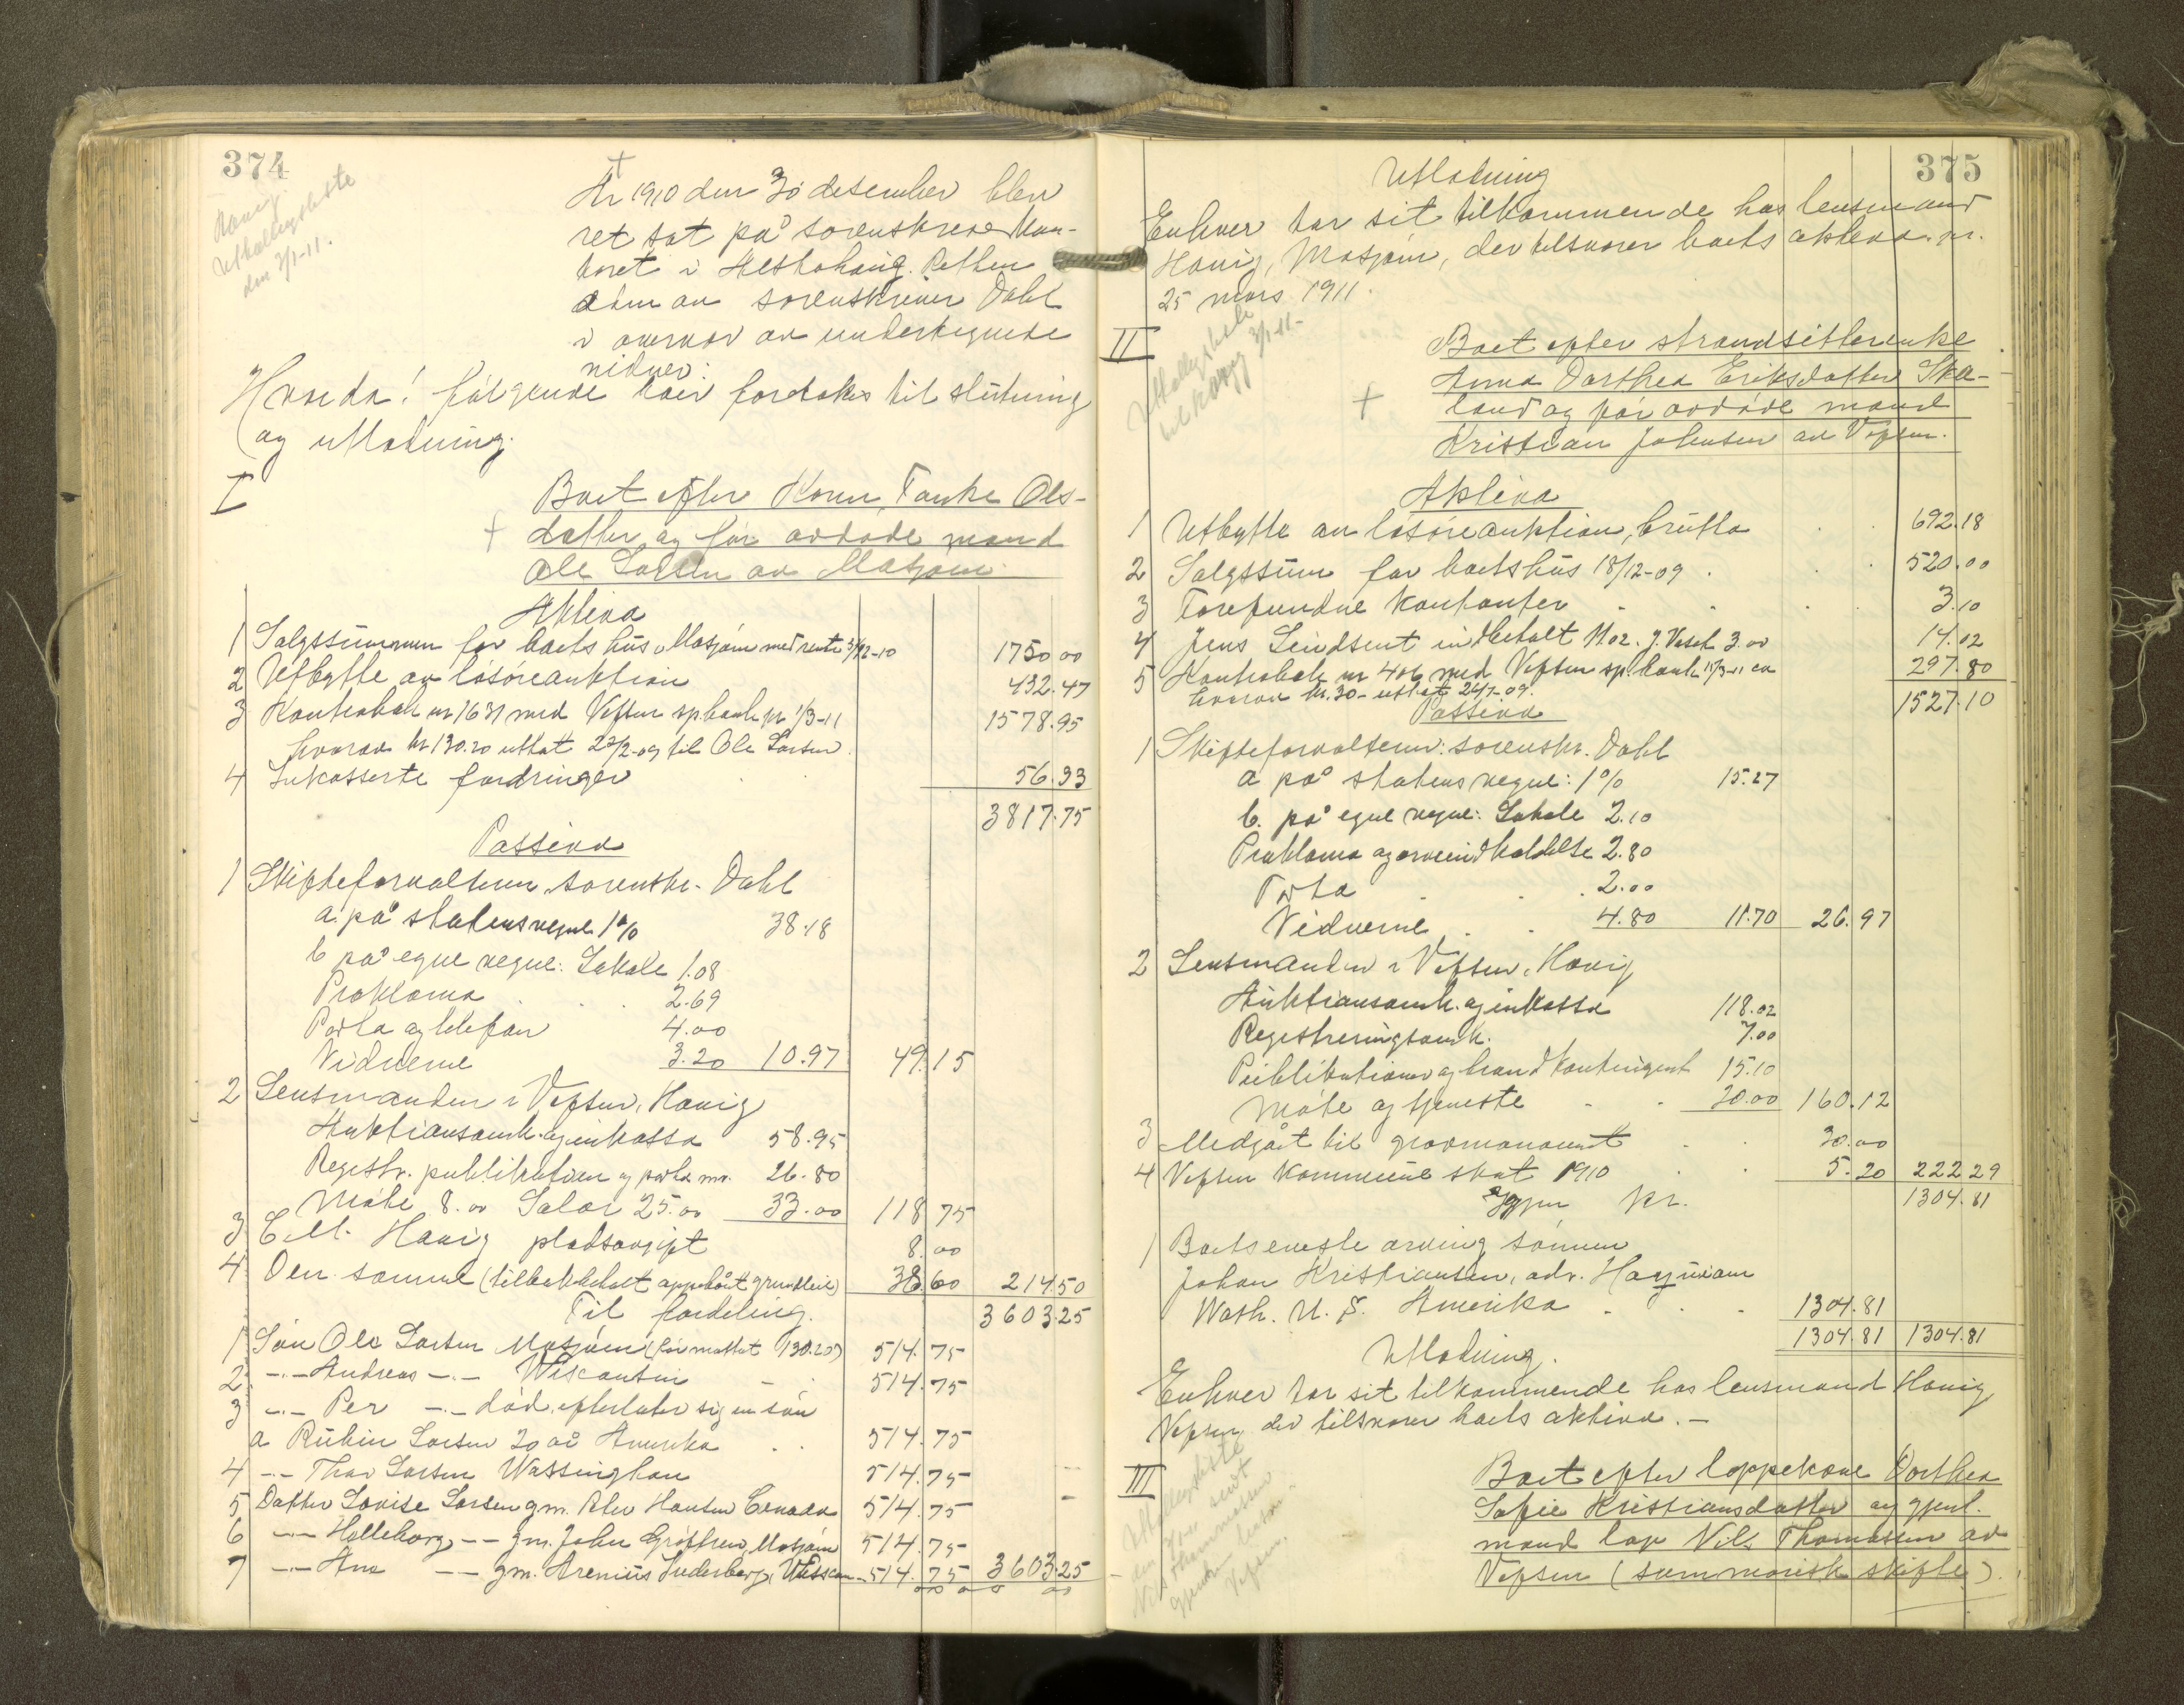 374
Havig
Utkallegsliste
den 3/1-11.
År 1910 den 30 desember blev
ret sat på sorenskriverkon-
toret i Alstahaug. Retten
adm av sorenskriver Dahl
i overvær av undertegnede
vidner:
Hvorda! følgende boer foretokes til slutning
og utlodning.
I
Boet efter Karen Tanke Ols-
datter og før avdøde mand
Ole Larsen av Mosjøen.
Aktiva
1 Salgssummen for boets hus i Mosjøen med rente 31/12-10 1750.00
2 Utbytte av løsøreauktion 432.47
3 Kontrabok nr 1631 med Vefsen spbank pr 1/3-11 1578.95
hvorav kr 130.20 uttat 22/2-09 til Ole Larsen.
4 Inkasserte fordringer 56.33
3817.75
Passiva
1 Skifteforvalteren, sorenskr. Dahl
a. på statens vegne 1% 38.18
b på egne vegne: Lokale 1.08
Proklama 2.69
Porto og telefon 4.00
Vidnerne 3.20 10.97 49.15
2 Lensmanden i Vefsen, Havig
Auktionsomk. og inkasso 58.95
Registr. publikation og porto mv. 26.80
Møte 8.00 Salær 25.00 33.00 118.75
3 C.M. Havig pladsavgift 8.00
4 Den samme (tilbakebetalt oppebåret grundleie) 38.60 214.50
Til fordeling. 3603.25
1 Søn Ole Larsen Mosjøen (før mottat 130.20) 514.75
2 -.- Andreas -.- Wisconsin 514.75
3 -.- Per -.- død, efterlater sig en søn
a Rubin Larsen 20 år Amerika 514.75
4 -.- Thor Larsen Wassinghan 514.75
5 Datter Lovise Larsen gm. Peter Hansen Canada 514.75
6 -.- Helleborg -.- gm. John Griffren, Mosjøen 514.75
7 -.- Ane -.- gm. Arenius Suderberg, Wiscon- 514.75 3603.25
375
Utlodning
Enhver har sit tilkommende hos lensmand
Havig, Mosjøen, der tilsvarer boets aktiva. pr.
25 mars 1911.
Utkallegsliste
til Havig 3/1-11-
II
Boet efter strandsitterenke
Anna Dorthea Eriksdatter Ska-
land og før avdøde mand
Kristian Johnsen av Vefsen.
Aktiva
1 Utbytte av løsøreauktion, brutto 692.18
2 Salgssum for boets hus 18/12-09 520.00
3 Forefundne kontanter 3.10
4 Jens Lindset indbetalt 11.02. J. Vesch 3.00 14.02
5 Kontrabok nr 406 med Vefsen sp.bank 15/3-11 ca 297.80
hvorav kr. 30- uttat 26/7-09. 1527.10
Passiva
1 Skifteforvalteren: sorenskr. Dahl
a på statens vegne: 1% 15.27
b. på egne vegne: Lokale 2.10
Proklama og arveindkaldelse 2.80
Porto 2.00
Vidnerne 4.80 11.70 26.97
2 Lensmanden i Vefsen, Havig
Auktionsomk. og inkasso 118.02
Registreringsomk. 7.00
Publikationer og brandkontingent 15.10
Møte og tjeneste 20.00 160.12
3 Medgåt til gravmonument 30.00
4 Vefsen kommune skat 1910 5.20 222 29
Igjen kr. 1304.81
1 Boets eneste arving sønnen
Johan Kristiansen, adr. Hoquiam
Wash. U. S. Amerika 1304.81
1304.81 1304.81
Utlodning.
Enhver har sit tilkommende hos lensmand Havig
Vefsen, der tilsvarer boets aktiva. -
III
Boet efter loppekone Dorthea
Sofie Kristiansdatter og gjenl.
mand lap Nils Thomassen av
Vefsen (summarisk skifte).
Utkallegsliste
sendt
Nils Thomassen
Vefsen.